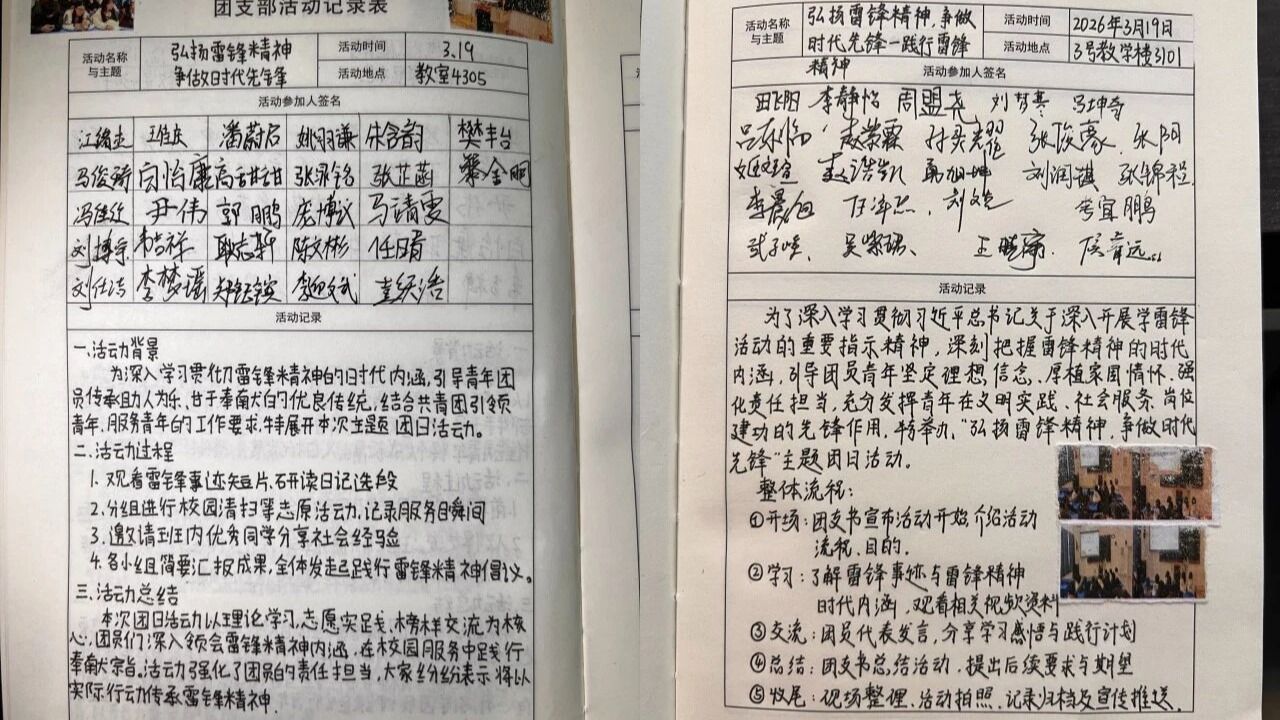 团支部活动记录表
活动名称与主题
弘扬雷锋精神
争做时代先锋
活动时间
3.19
活动地点
教室4305
活动参加人签名
潘蔚启 姚羽谦 朱含韵 樊丰台
马俊骑 闫怡康 高甜甜 张鼎铭 张芷菡 黎金明
尹伟 郭鹏 庞博议 马靖雯
刘博宗 韦吉祥 耿志新 陈文彬 任日睛
刘仕洁 李梦瑶
活动记录
一.活动背景
为深入学习贯彻雷锋精神的时代内涵,引导青年团
员传承助人为乐、甘于奉献的优良传统,结合共青团引领
青年、服务青年的工作要求,特展开本次主题团日活动。
二.活动过程
1. 观看雷锋事迹短片,研读日记选段
2.分组进行校园清扫等志愿活动,记录服务瞬间
3.邀请班内优秀同学分享社会经验
4.各小组简要汇报成果,全体发起践行雷锋精神倡议。
三.活动总结
本次团日活动以理论学习,志愿实践,榜样交流为核
心,团员们深入领会雷锋精神内涵,在校园服务中践行
奉献宗旨。活动强化了团员的责任担当,大家纷纷表示将以
实际行动传承雷锋精神.
活动名称与主题
弘扬雷锋精神,争做
时代先锋—践行雷锋
精神
活动时间
2026年3月19日
活动地点
3号教学楼3101
活动参加人签名
田飞阳 李静怡 周盟尧 刘梦寒 吕坤奇
张俊豪、张阳
刘润祺 张锦程
李晨旭 刘文 李宜鹏
吴紫珺、 侯章远
活动记录
为了深入学习贯彻习近平总书记关于深入开展学雷锋
活动的重要指示精神,深刻把握雷锋精神的时代
内涵,引导团员青年坚定理想信念、厚植家国情怀、强
化责任担当,充分发挥青年在文明实践、社会服务、岗位
建功的先锋作用,特举办“弘扬雷锋精神,争做时代
先锋”主题团日活动。
整体流程:
①开场:团支书宣布活动开始,介绍活动
流程、目的.
②学习:了解雷锋事迹与雷锋精神
时代内涵,观看相关视频资料
③交流:团员代表发言,分享学习感悟与践行计划
④总结:团支书总结活动,提出后续要求与期望
⑤收尾:现场整理、活动拍照、记录归档及宣传推送.